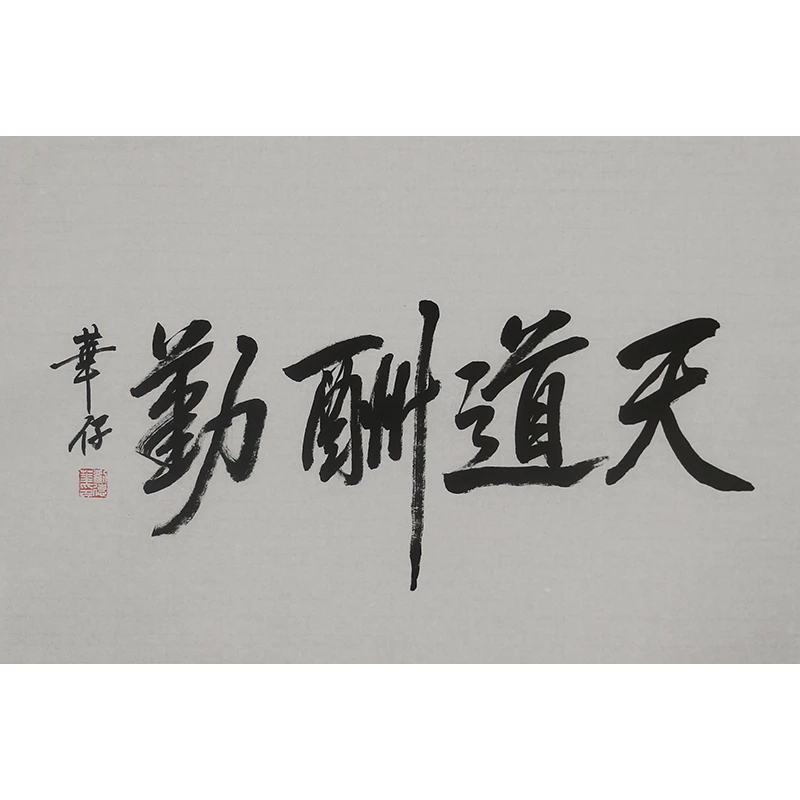 天道酬勤
華仔